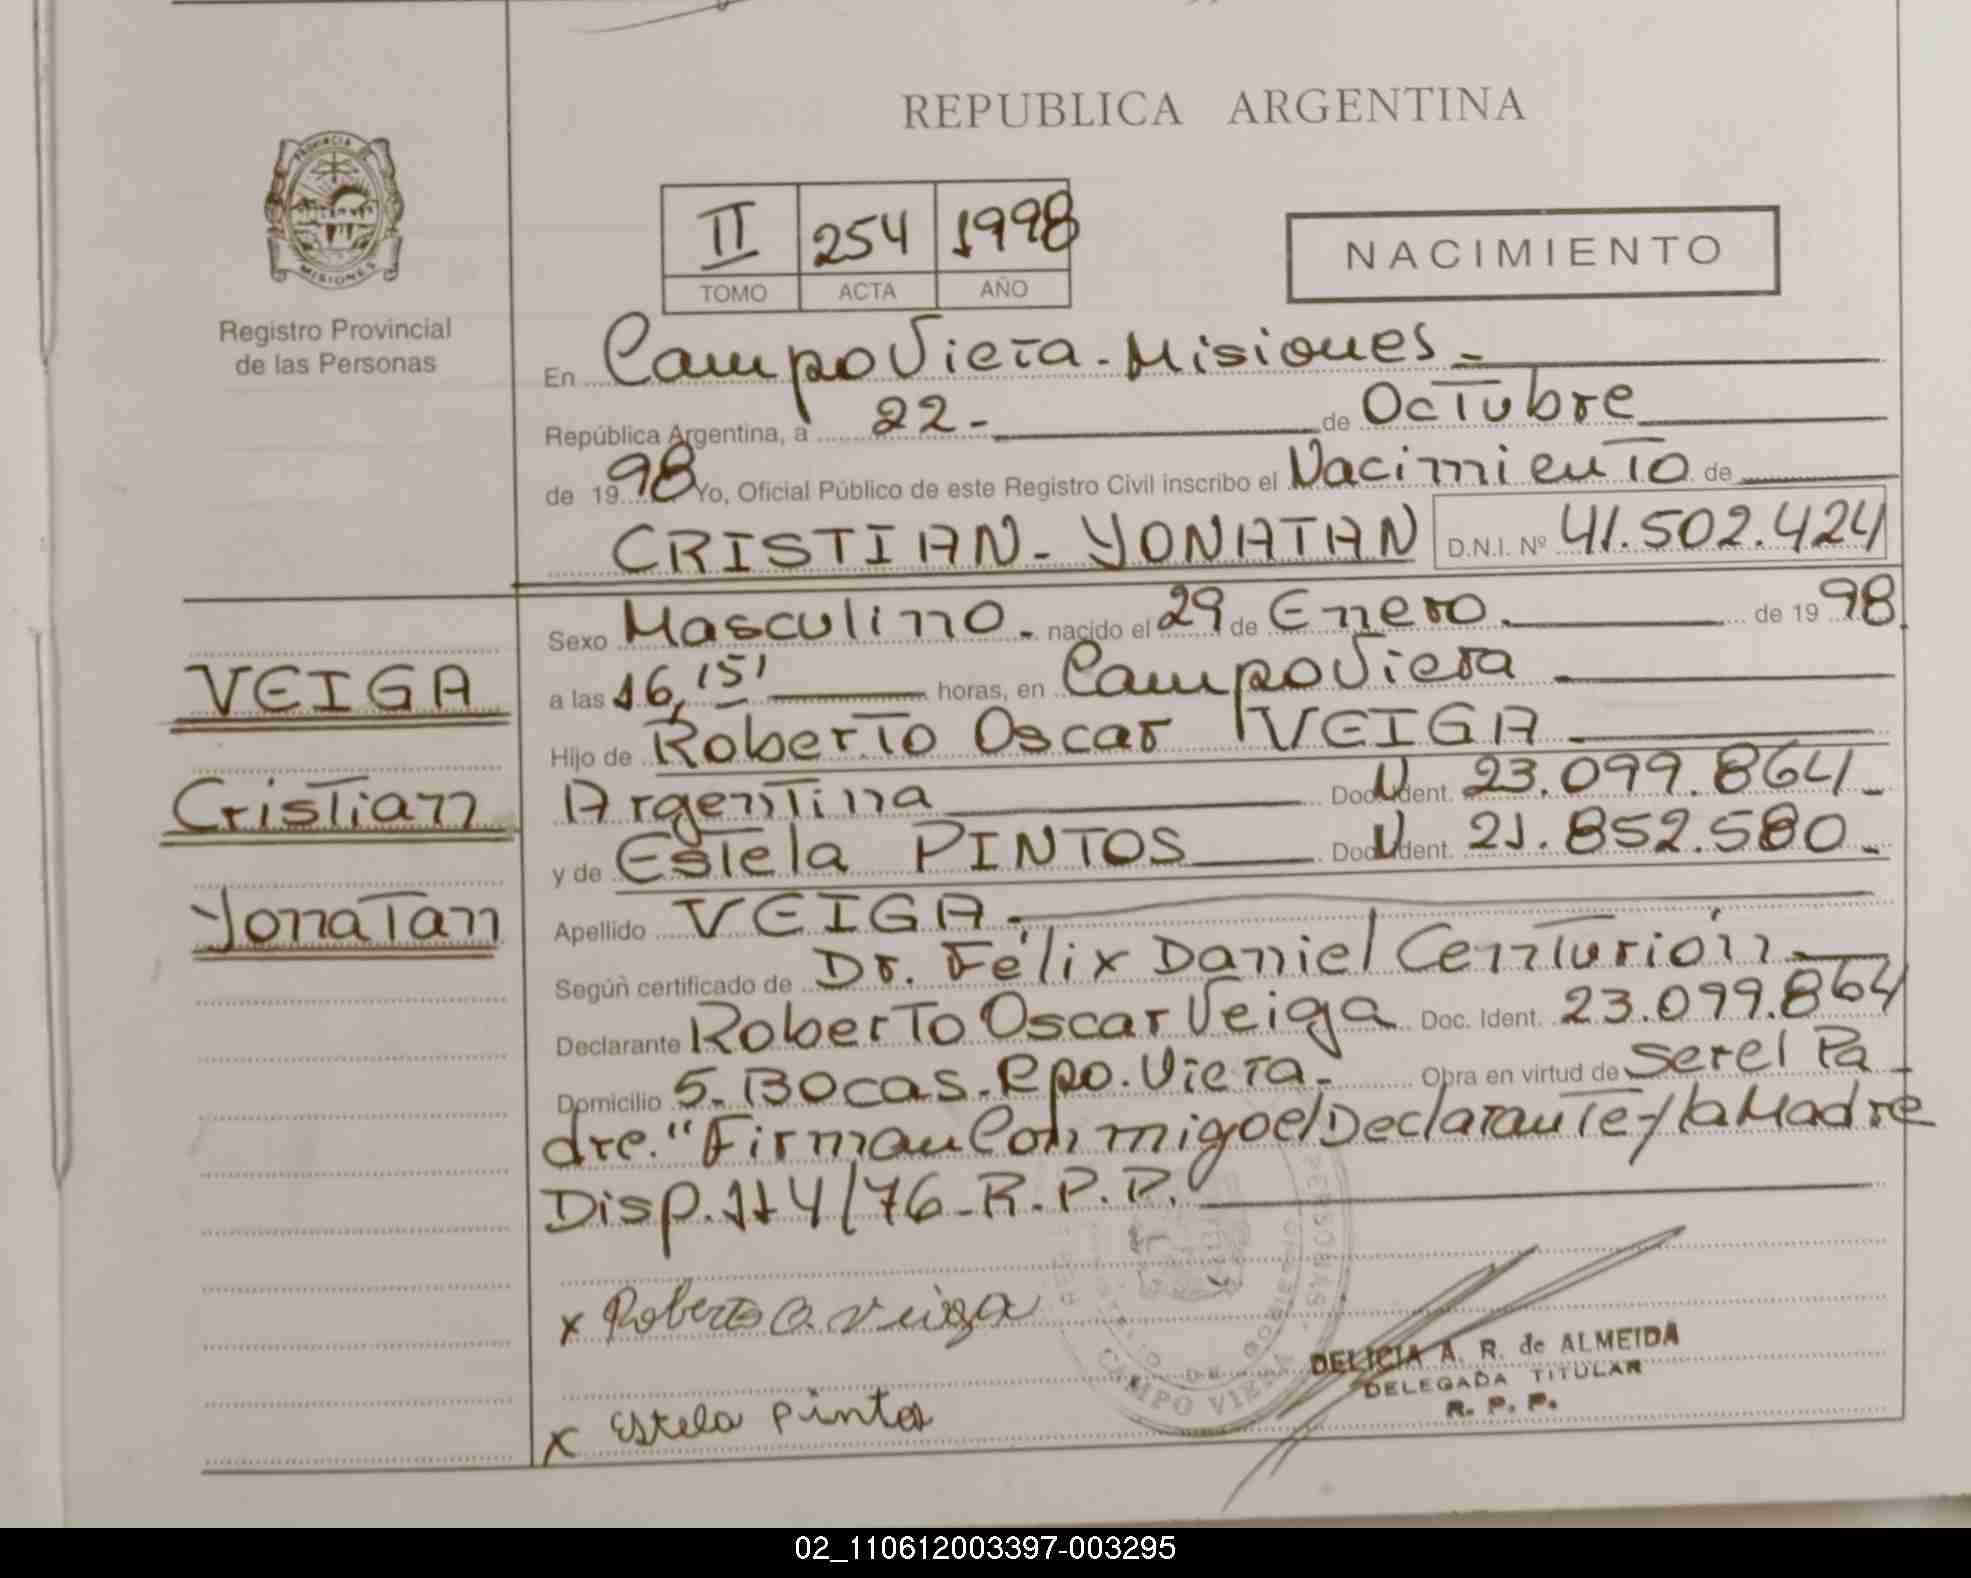 REPUBLICA ARGENTINA
PROVINCIA DE
MISIONES
Registro Provincial
de las Personas
II 254 1998
TOMO ACTA AÑO
NACIMIENTO
En Campo Viera - Misiones -
República Argentina, a 22 - de Octubre
de 1998 Yo, Oficial Público de este Registro Civil inscribo el Nacimiento de
CRISTIAN - YONATAN D.N.I. Nº 41.502.424
VEIGA
Cristian
Yonatan
Sexo Masculino. - nacido el 29 de Enero. de 19 98
a las 16,15' horas, en Campo Viera
Hijo de Roberto Oscar VEIGA
Argentina Doc. Ident. 23.099.864 -
y de Estela PINTOS Doc. Ident. 21.852.580. -
Apellido VEIGA. -
Según certificado de Dr. Félix Daniel Centurión. -
Declarante Roberto Oscar Veiga Doc. Ident. 23.099.864
Domicilio 5. Bocas. - Cpo. Viera. - Obra en virtud de ser el Pa -
dre. " Firman Conmigo el Declarante y la Madre
Disp. 114/76 - R.P.P.
x Roberto O. Veiga
x Estela Pintos
CAMPO VIERA
DELICIA A. R. de ALMEIDA
DELEGADA TITULAR
R. P. P.
02_110612003397-003295